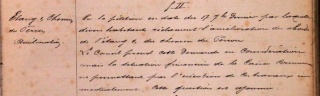 § II
Etang & Chemin
de Terron
Vu la pétition en date du 17 7bre dernier par laquelle
divers habitants réclament l'amélioration du
l'étang & du chemin de Terron
Le Conseil prend cette demande en considération
mais la situation financière de la Caisse
ne permettant pas l'exécution de travaux
Cette question est ajournée